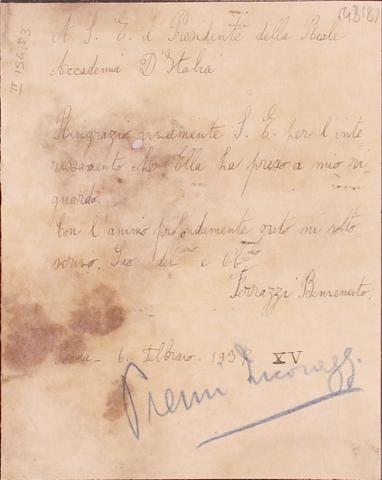 (4318)
II 154,53
A S. E. il Presidente della Reale
Accademia D'Italia
Ringrazio vivamente S. E. per l'inte
ressamento che Ella ha preso a mio ri-
guardo.
Con l'animo profondamente grato mi sotto
scrivo. Suo dev mo e
Terrazzi Benvenuto.
6. Febbraro. 193 XV
Premi Incoragg.